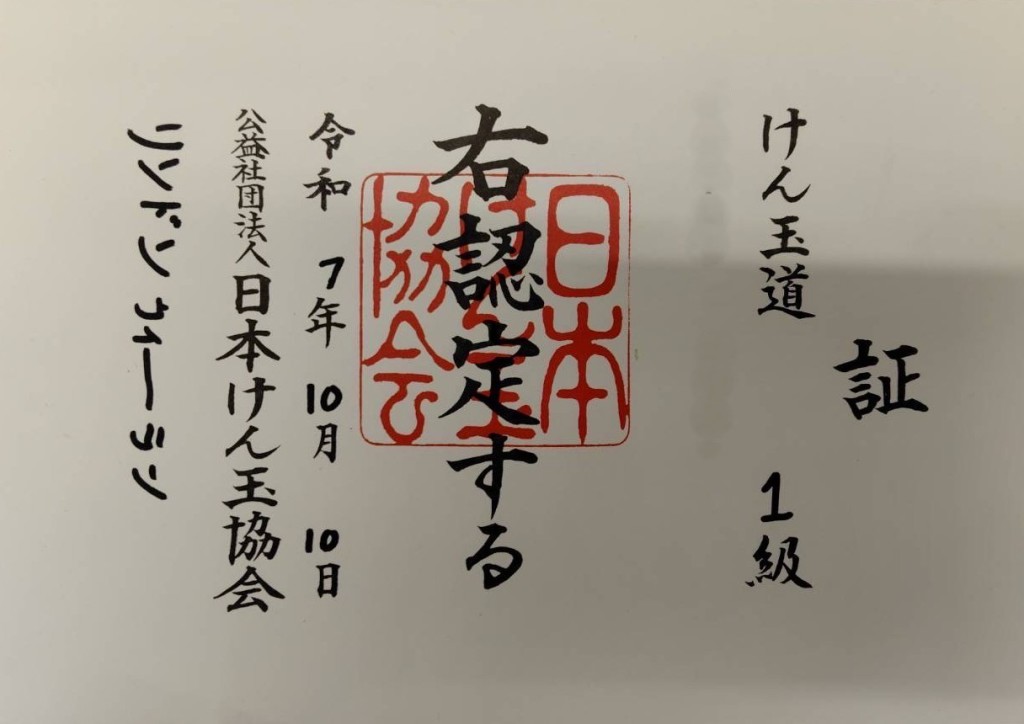 証
けん玉道 1級
右認定する
日本
けん玉
協会
令和 7年 10月 10日
公益社団法人日本けん玉協会
リンドン